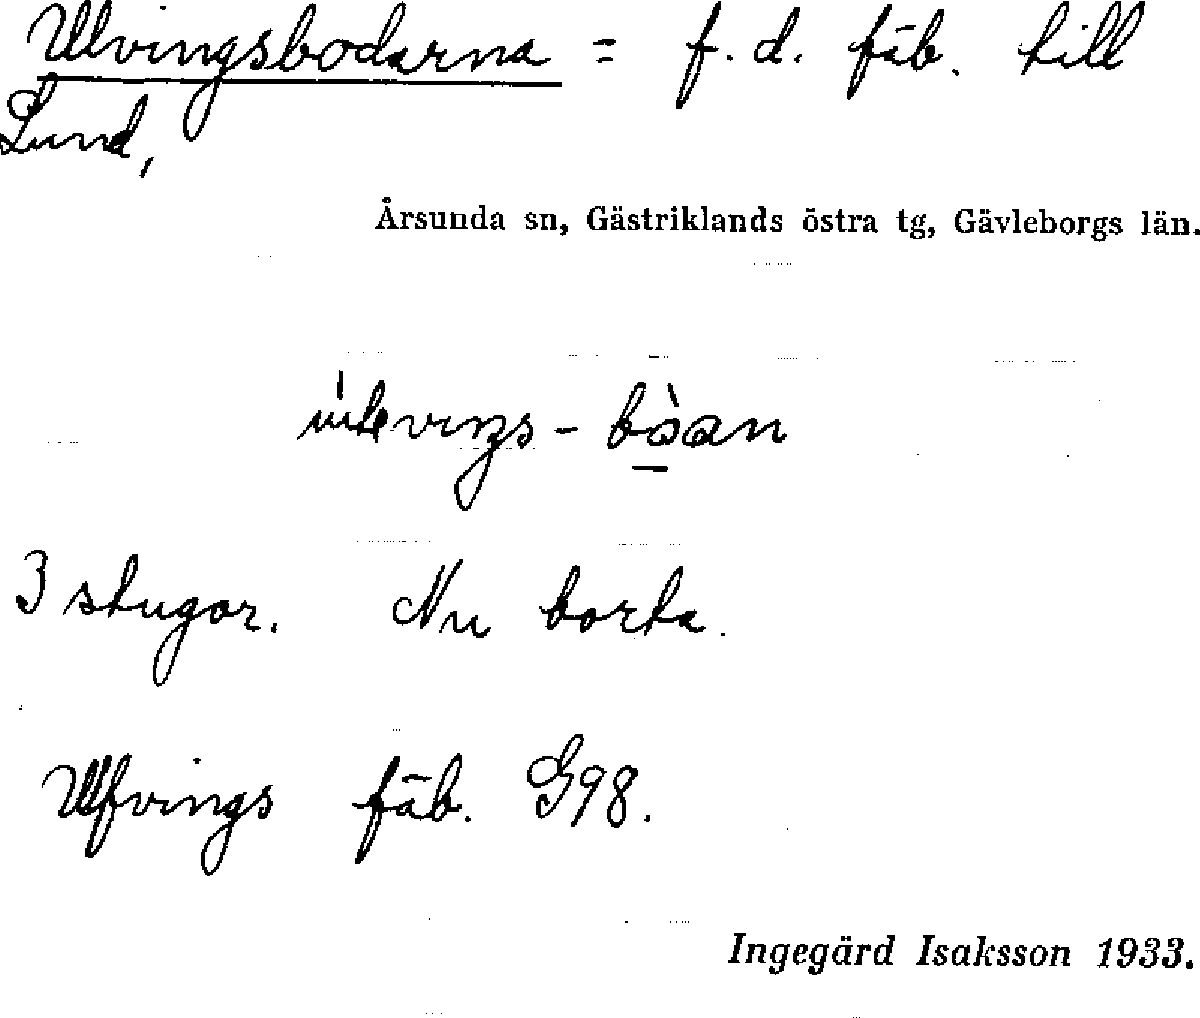 Ulvingsbodarna = f. d. fäb. till
Lund,
Årsunda sn, Gästriklands östra tg, Gävleborgs län.
3 stugor. Nu borta.
Ulfvings fäb. G98.
Ingegärd Isaksson 1933.